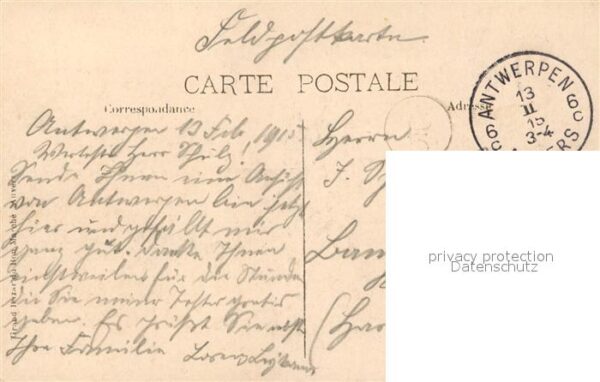 Feldpostkarte
CARTE POSTALE
Correspondance
Adresse
ANTWERPEN
13
II
15
3-4
6C
6C
ERS
Antwerpen 13 Feb. 1915
Wertester Herr Schulz!
Sende Ihnen eine Ansicht
von Antwerpen bin jetzt
hier und gefällt mir
ganz gut. danke Ihnen
einstweilen für die Stunden
die Sie meiner Tochter gratis
geben. Es grüßt Sie nebst
Ihre Familie Lorenz
Herrn
J.
privacy protection
Datenschutz